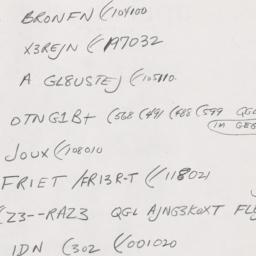 BRONFN ((104100
X3REJN ((197032
A GL8USTEJ ((105110.
OTNG1B+ (568 (491 (488 (599 QGL
(IM GEG
JOUX ((108010
FRIET /FR13R-T ((118021
(Z3--RAZ3 QGL AJNG3KOXT FL
IDN (302 ((001020